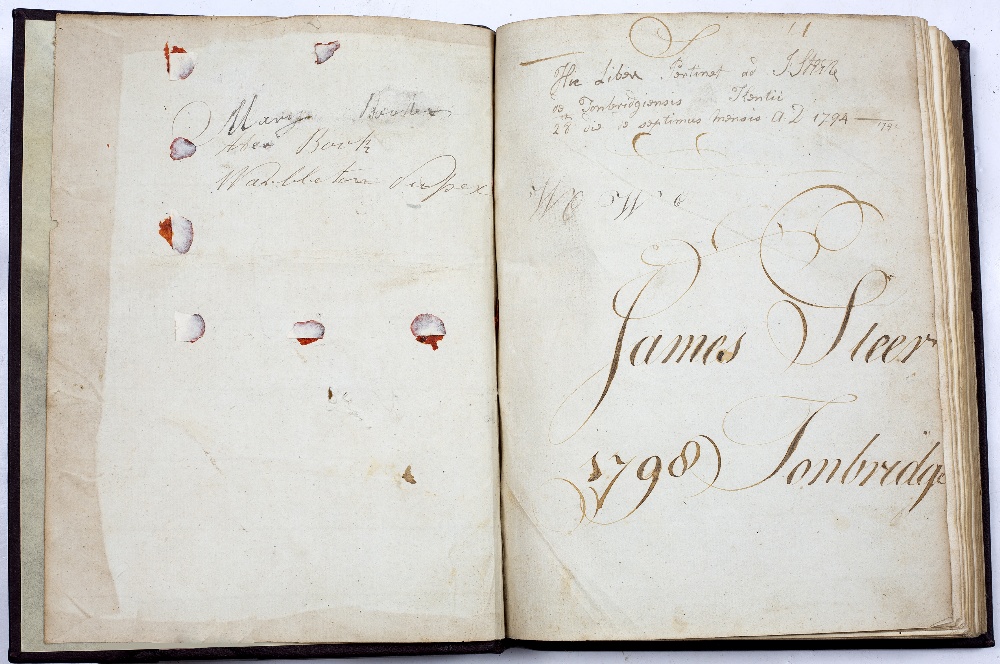 Mary
her Book
Warbleton Sussex
Hic Liber Pertinet ad J Steer
Tonbridgiensis Kentii
28 die septimus mensis A.D 1794
James Steer
1798 Tonbridge